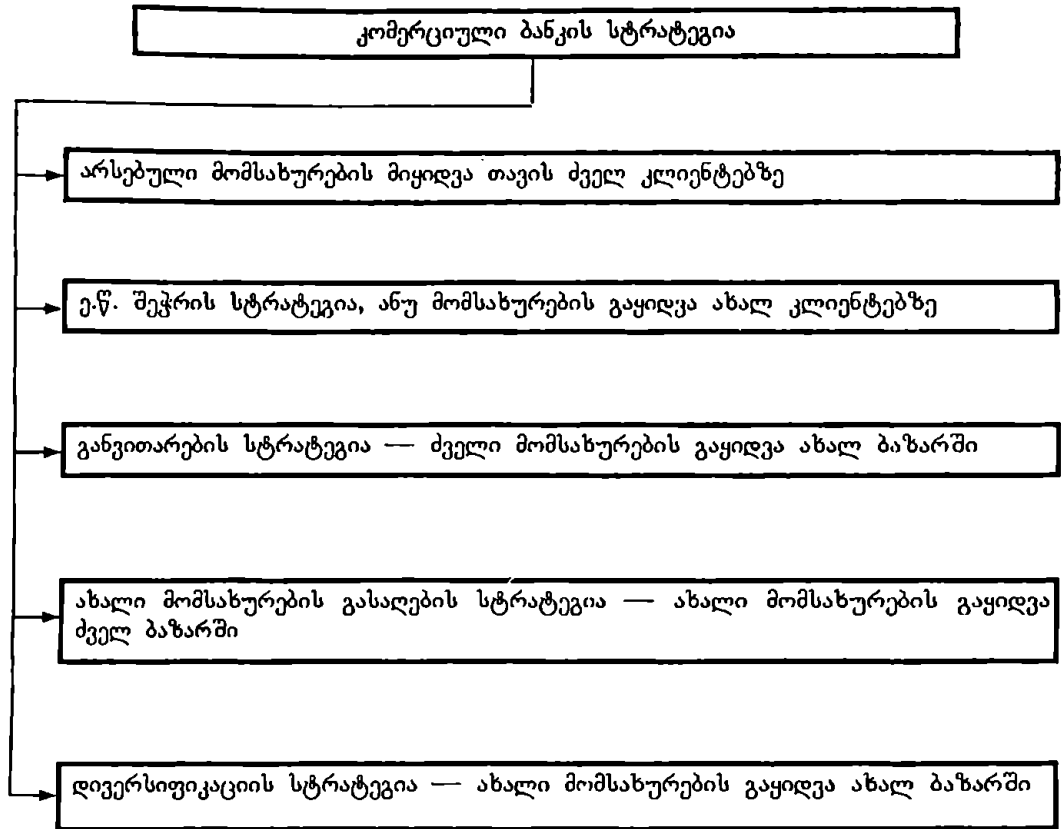 კომერციული ბანკის სტრატეგია
არსებული მომსახურების მიყიდვა თავის ძველ კლიენტებზე
ე.წ. შეჭრის სტრატეგია, ანუ მომსახურების გაყიდვა ახალ კლიენტებზე
განვითარების სტრატეგია — ძველი მომსახურების გაყიდვა ახალ ბაზარში
ახალი მომსახურების გასაღების სტრატეგია — ახალი მომსახურების გაყიდვა
ძველ ბაზარში
დივერსიფიკაციის სტრატეგია — ახალი მომსახურების გაყიდვა ახალ ბაზარში